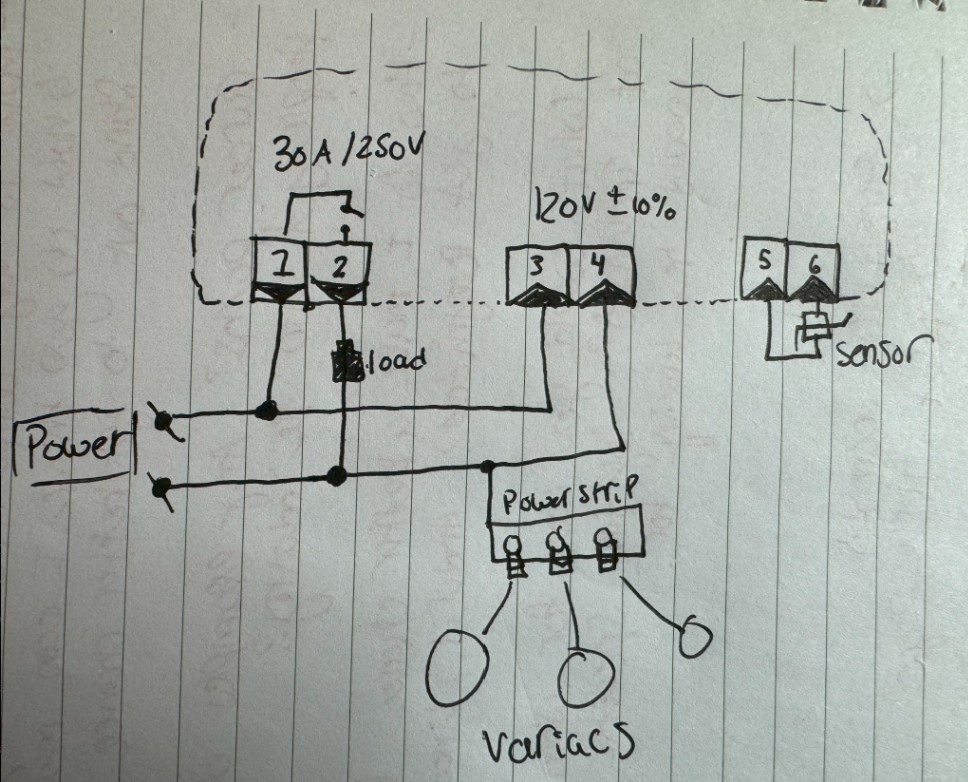 30A/250V
120V ±10%
1 2
3 4
5 6
load
sensor
Power
Power strip
variacs